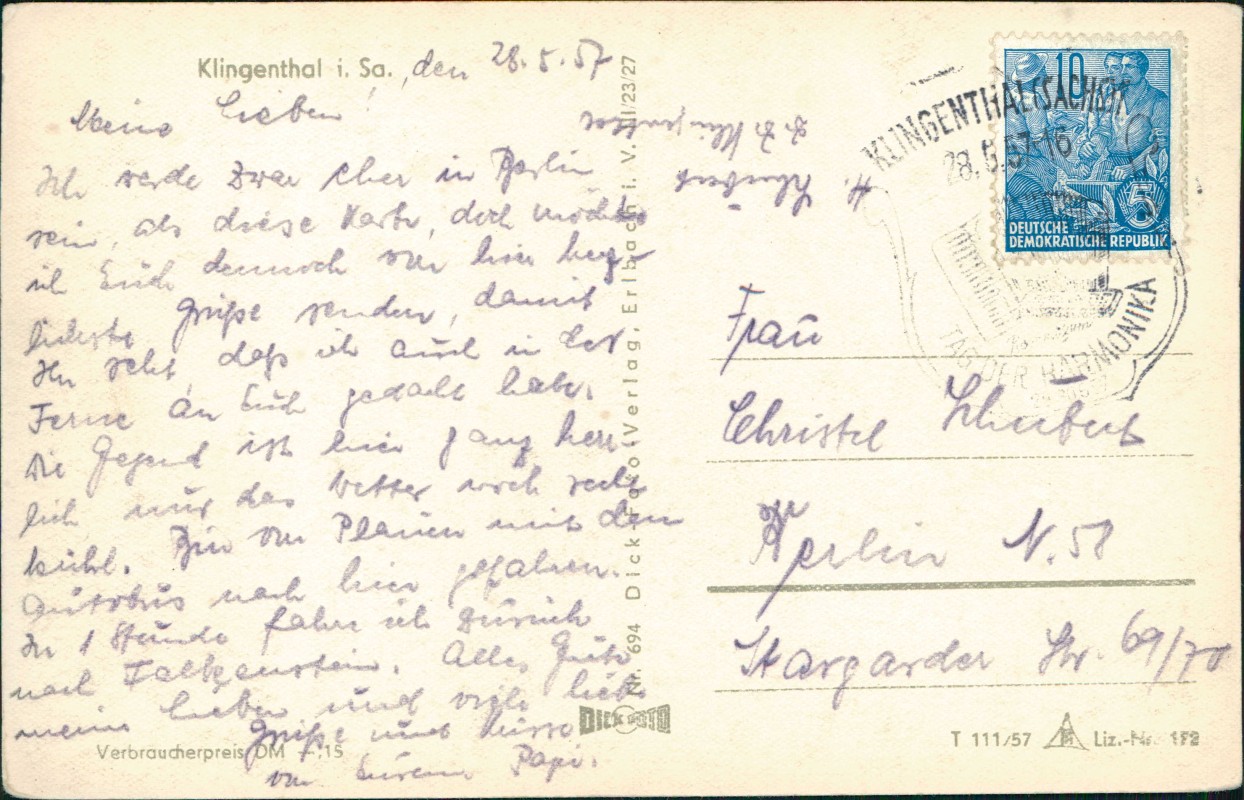 Klingenthal i. Sa., den 28.5.57
Meine Lieben!
Ich werde zwar eher in Berlin
sein, als diese Karte, doch möchte
ich Euch dennoch von hier herz-
lichste Grüße senden, damit
Ihr seht, daß ich auch in der
Ferne an Euch gedacht habe.
Die Gegend ist hier ganz herr
lich nur das Wetter noch recht
kühl. Bin von Plauen mit dem
Autobus nach hier gefahren.
In 1 Stunde fahre ich zurück
nach Falkenstein. Alles Gute
meine Lieben und viele liebe
Grüße und Küsse
von Eurem Papi.
Verbraucherpreis DM -.15
Nr. 694 Dick-Foto-Verlag, Erlbach i. V. II/23/27
DICK FOTO
H. Schubert
z. Z. Klingenthal
KLINGENTHAL (SACHS)
28.5.57-16
TAG DER HARMONIKA
10
5
DEUTSCHE
DEMOKRATISCHE REPUBLIK
Frau
Christel Schubert
Berlin N. 58
Stargarder Str. 69/70
T 111/57 Liz.-Nr. 172